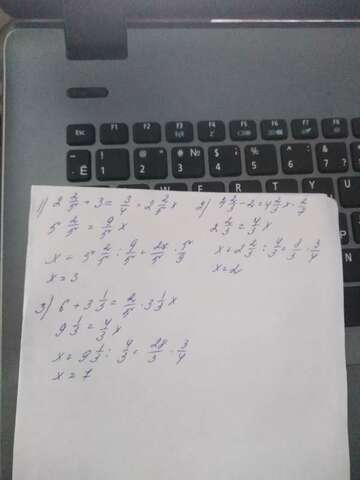 Esc F1 F2 F3 F4 F5 F6 F7
1) 2 2/5 + 3 = 3/4 · 2 2/5 x
5 2/5 = 9/5 x
x = 5 2/5 : 9/5 = 27/5 · 5/9
x = 3
2) 4 2/3 - 2 = 4 2/3 x · 2/7
2 2/3 = 4/3 x
x = 2 2/3 : 4/3 = 8/3 · 3/4
x = 2
3) 6 + 3 1/3 = 2/5 · 3 1/3 x
9 1/3 = 4/3 x
x = 9 1/3 : 4/3 = 28/3 · 3/4
x = 7